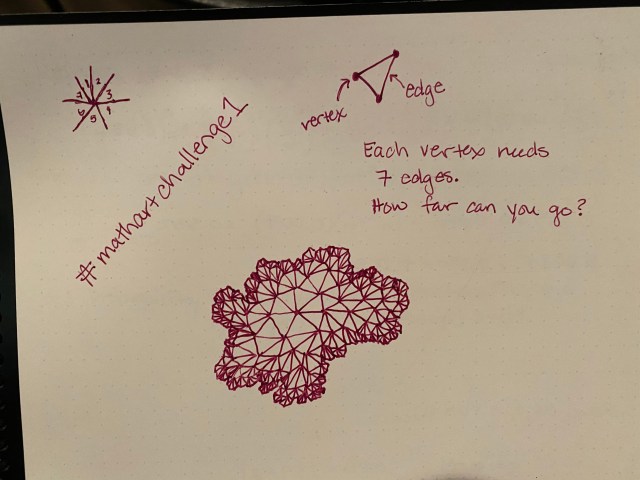 1 2 3 4 5 6 7
#mathartchallenge1
vertex
edge
Each vertex needs
7 edges.
How far can you go?